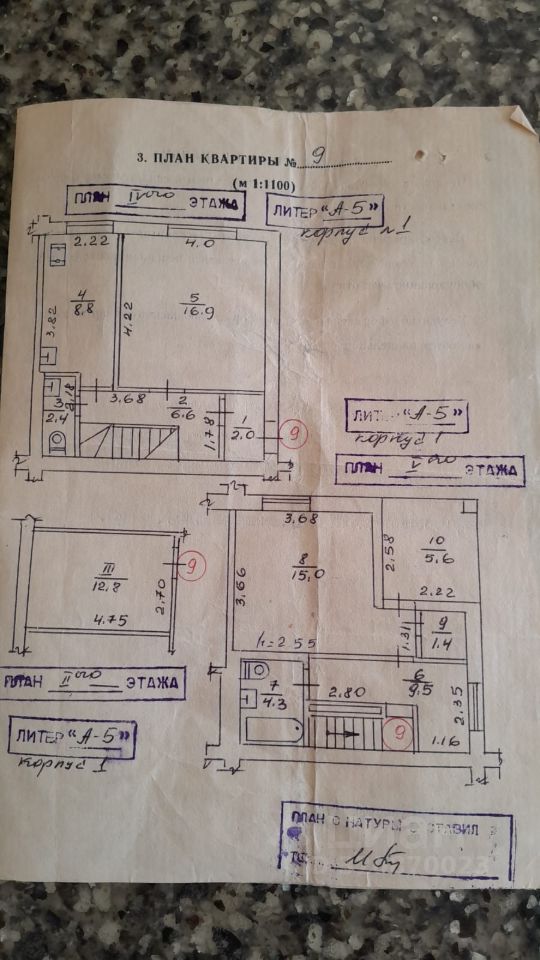 3. ПЛАН КВАРТИРЫ № 9
(м 1:1100)
ПЛАН IVого ЭТАЖА
ЛИТЕР "А-5"
корпус №1
2.22
4.0
4
8.8
5
16.9
3.82
4.22
3
2.4
2.18
3.68
2
6.6
1.78
1
2.0
9
ЛИТЕР "А-5"
корпус 1
ПЛАН Vого ЭТАЖА
3.68
8
15.0
3.66
h=2.55
2.58
10
5.6
2.22
1.31
9
1.4
III
12.8
2.70
4.75
9
ПЛАН IIого ЭТАЖА
ЛИТЕР "А-5"
корпус 1
7
4.3
2.80
6
9.5
2.35
1.16
9
ПЛАН С НАТУРЫ СОСТАВИЛ
70023